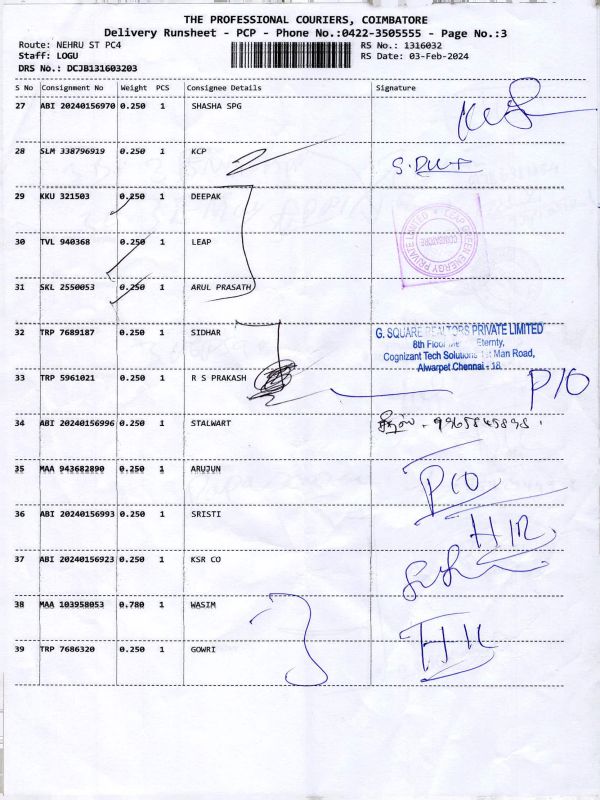 THE PROFESSIONAL COURIERS, COIMBATORE
Delivery Runsheet - PCP - Phone No.:0422-3505555 - Page No.:3
Route: NEHRU ST PC4 RS No.: 1316032
Staff: LOGU RS Date: 03-Feb-2024
DRS No.: DCJB131603203
S No Consignment No Weight PCS Consignee Details Signature
27 ABI 20240156970 0.250 1 SHASHA SPG
28 SLM 338796919 0.250 1 KCP
29 KKU 321503 0.250 1 DEEPAK
30 TVL 940368 0.250 1 LEAP
LEAP GREEN ENERGY PRIVATE LIMITED
COIMBATORE
31 SKL 2550053 0.250 1 ARUL PRASATH
32 TRP 7689187 0.250 1 SIDHAR
G. SQUARE REALTORS PRIVATE LIMITED
8th Floor Eternty,
Cognizant Tech Solutions Man Road,
Alwarpet Chennai - 18
33 TRP 5961021 0.250 1 R S PRAKASH P/O
34 ABI 20240156996 0.250 1 STALWART
35 MAA 943682890 0.250 1 ARUJUN P/O
36 ABI 20240156993 0.250 1 SRISTI
37 ABI 20240156923 0.250 1 KSR CO
38 MAA 103958053 0.780 1 WASIM
39 TRP 7686320 0.250 1 GOWRI